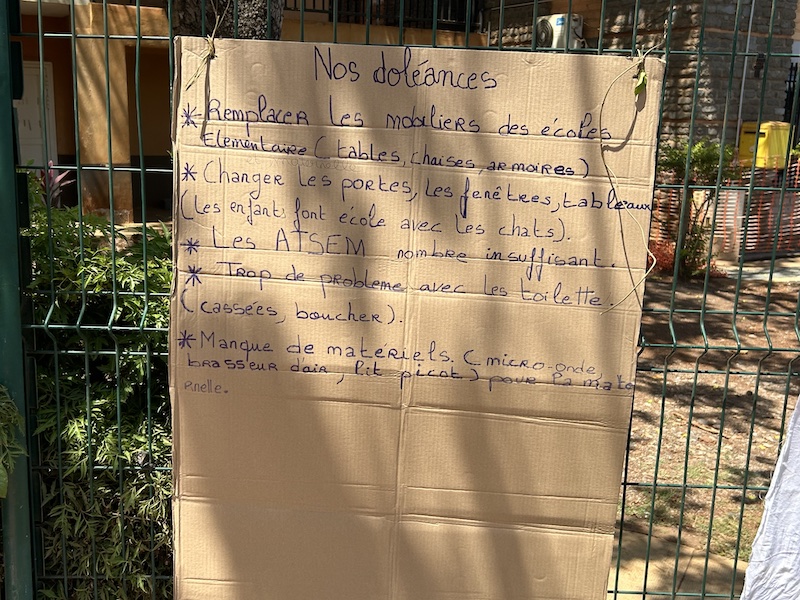 Nos doléances
* Remplacer les mobiliers des écoles
Elementaire (tables, chaises, armoires)
* Changer les portes, les fenêtres, tableaux
(les enfants font école avec les chats).
* Les ATSEM nombre insuffisant.
* Trop de probleme avec les toilette.
(cassées, boucher).
* Manque de matériels. (micro-onde,
brasseur d'air, lit picot) pour la mate
rnelle.